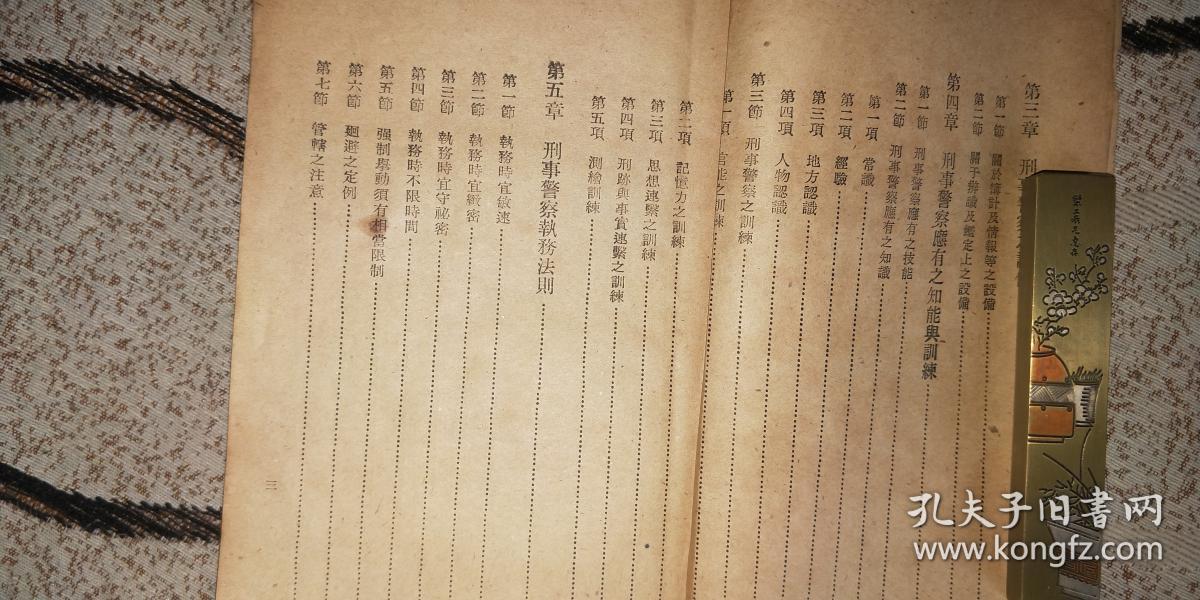 第三章 刑事警察
第一節 關於簿計及情報等之設備
第二節 關于辯識及鑑定上之設備
第四章 刑事警察應有之知能與訓練
第一節 刑事警察應有之技能
第二節 刑事警察應有之知識
第一項 常識
第二項 經驗
第三項 地方認識
第四項 人物認識
第三節 刑事警察之訓練
第一項 官能之訓練
第二項 記憶力之訓練
第三項 思想連繫之訓練
第四項 刑跡與事實連繫之訓練
第五項 測繪訓練
第五章 刑事警察執務法則
第一節 執務時宜敏速
第二節 執務時宜緻密
第三節 執務時宜守祕密
第四節 執務時不限時間
第五節 强制舉動須有相當限制
第六節 廻避之定例
第七節 管轄之注意
三
孔夫子旧书网
www.kongfz.com